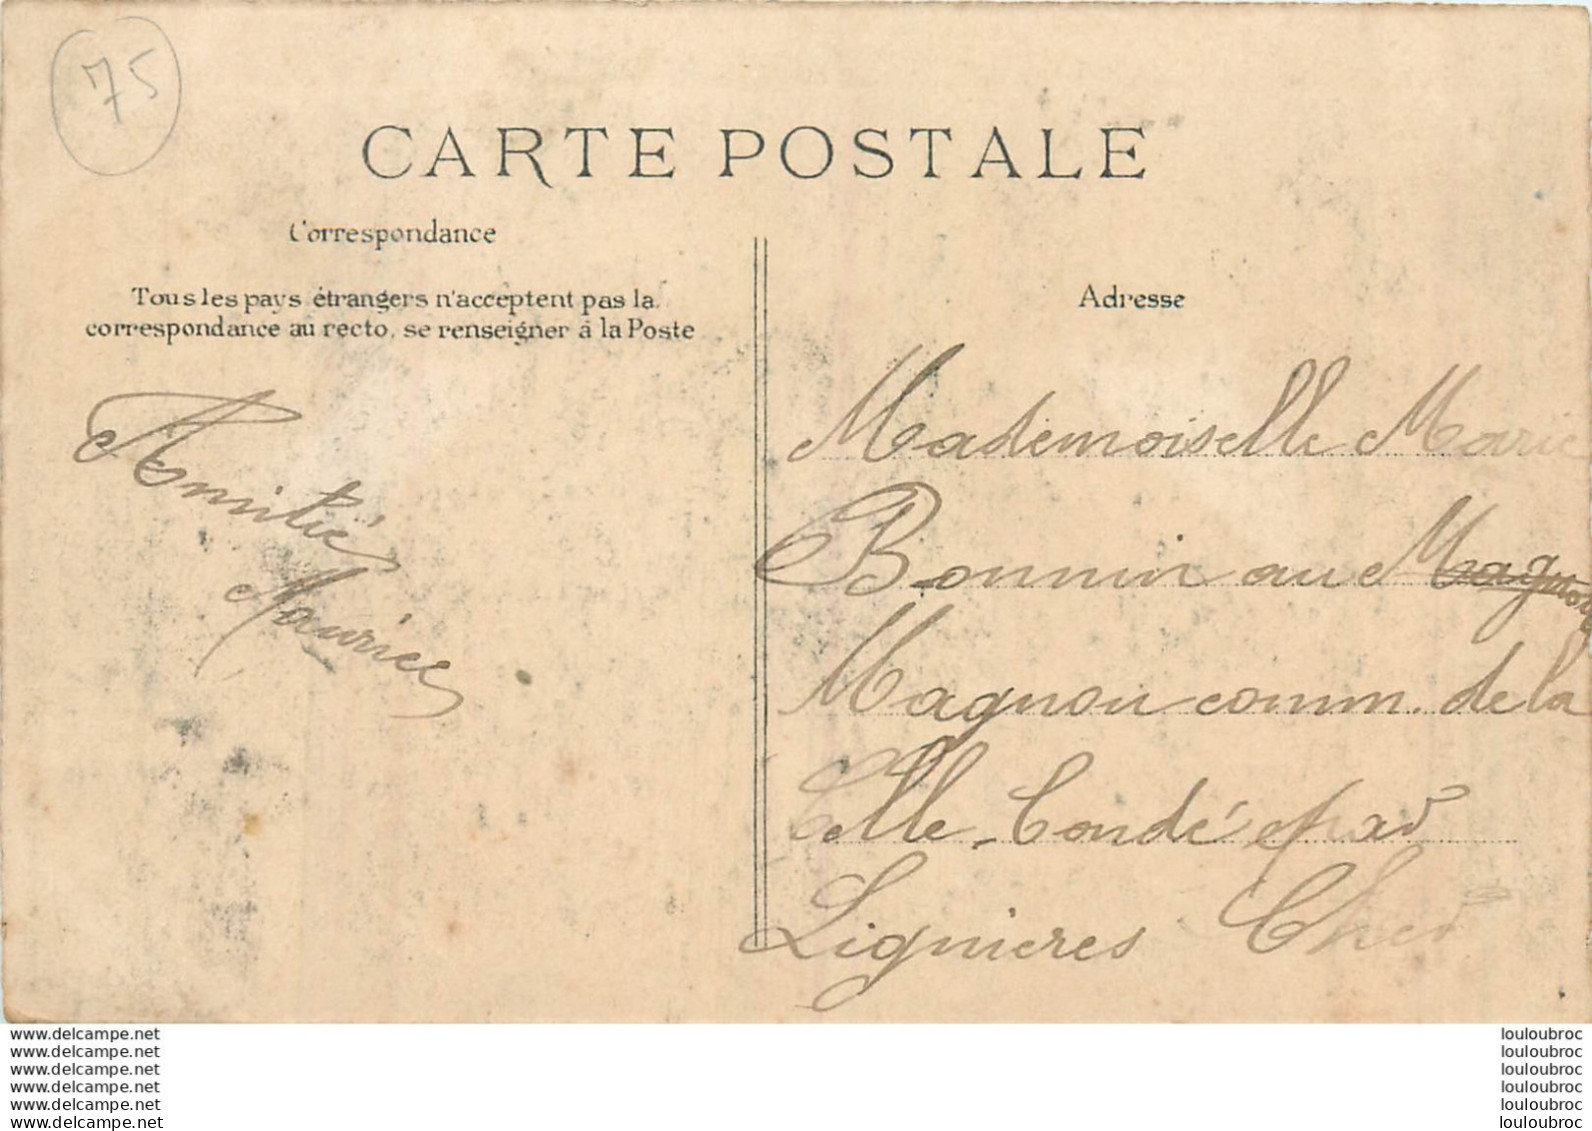 75
CARTE POSTALE
Correspondance
Tous les pays étrangers n'acceptent pas la
correspondance au recto, se renseigner à la Poste
Amitié
Maurice
Adresse
Mademoiselle Marie
Bonnin au Magnou
Magnou comm. de la
Celle-Condé par
Lignieres Cher
www.delcampe.net
www.delcampe.net
www.delcampe.net
www.delcampe.net
www.delcampe.net
www.delcampe.net
louloubroc
louloubroc
louloubroc
louloubroc
louloubroc
louloubroc